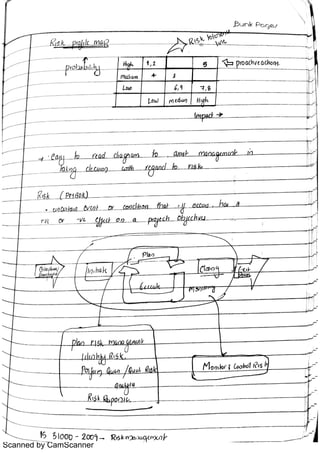 Risk profile map
Risk tolerance line
proactive actions
probability
High 1,2 5
Medium 4 3
Low 6,9 7,8
Low medium High
Impact →
→ Easy to read diagram to
management in
taking decision with regard to risks
Risk (PMBOK)
• uncertain event or condition that if occurs, has a
+ve or -ve effect on a project objectives
Plan
Initiate
Closing
Execute
Monitoring
plan risk management
Identify Risk
Perform Quan / Quali Risk
analysis
Risk Response
Monitor & Control Risk
IS 31000 - 2009 → Risk management
Scanned by CamScanner